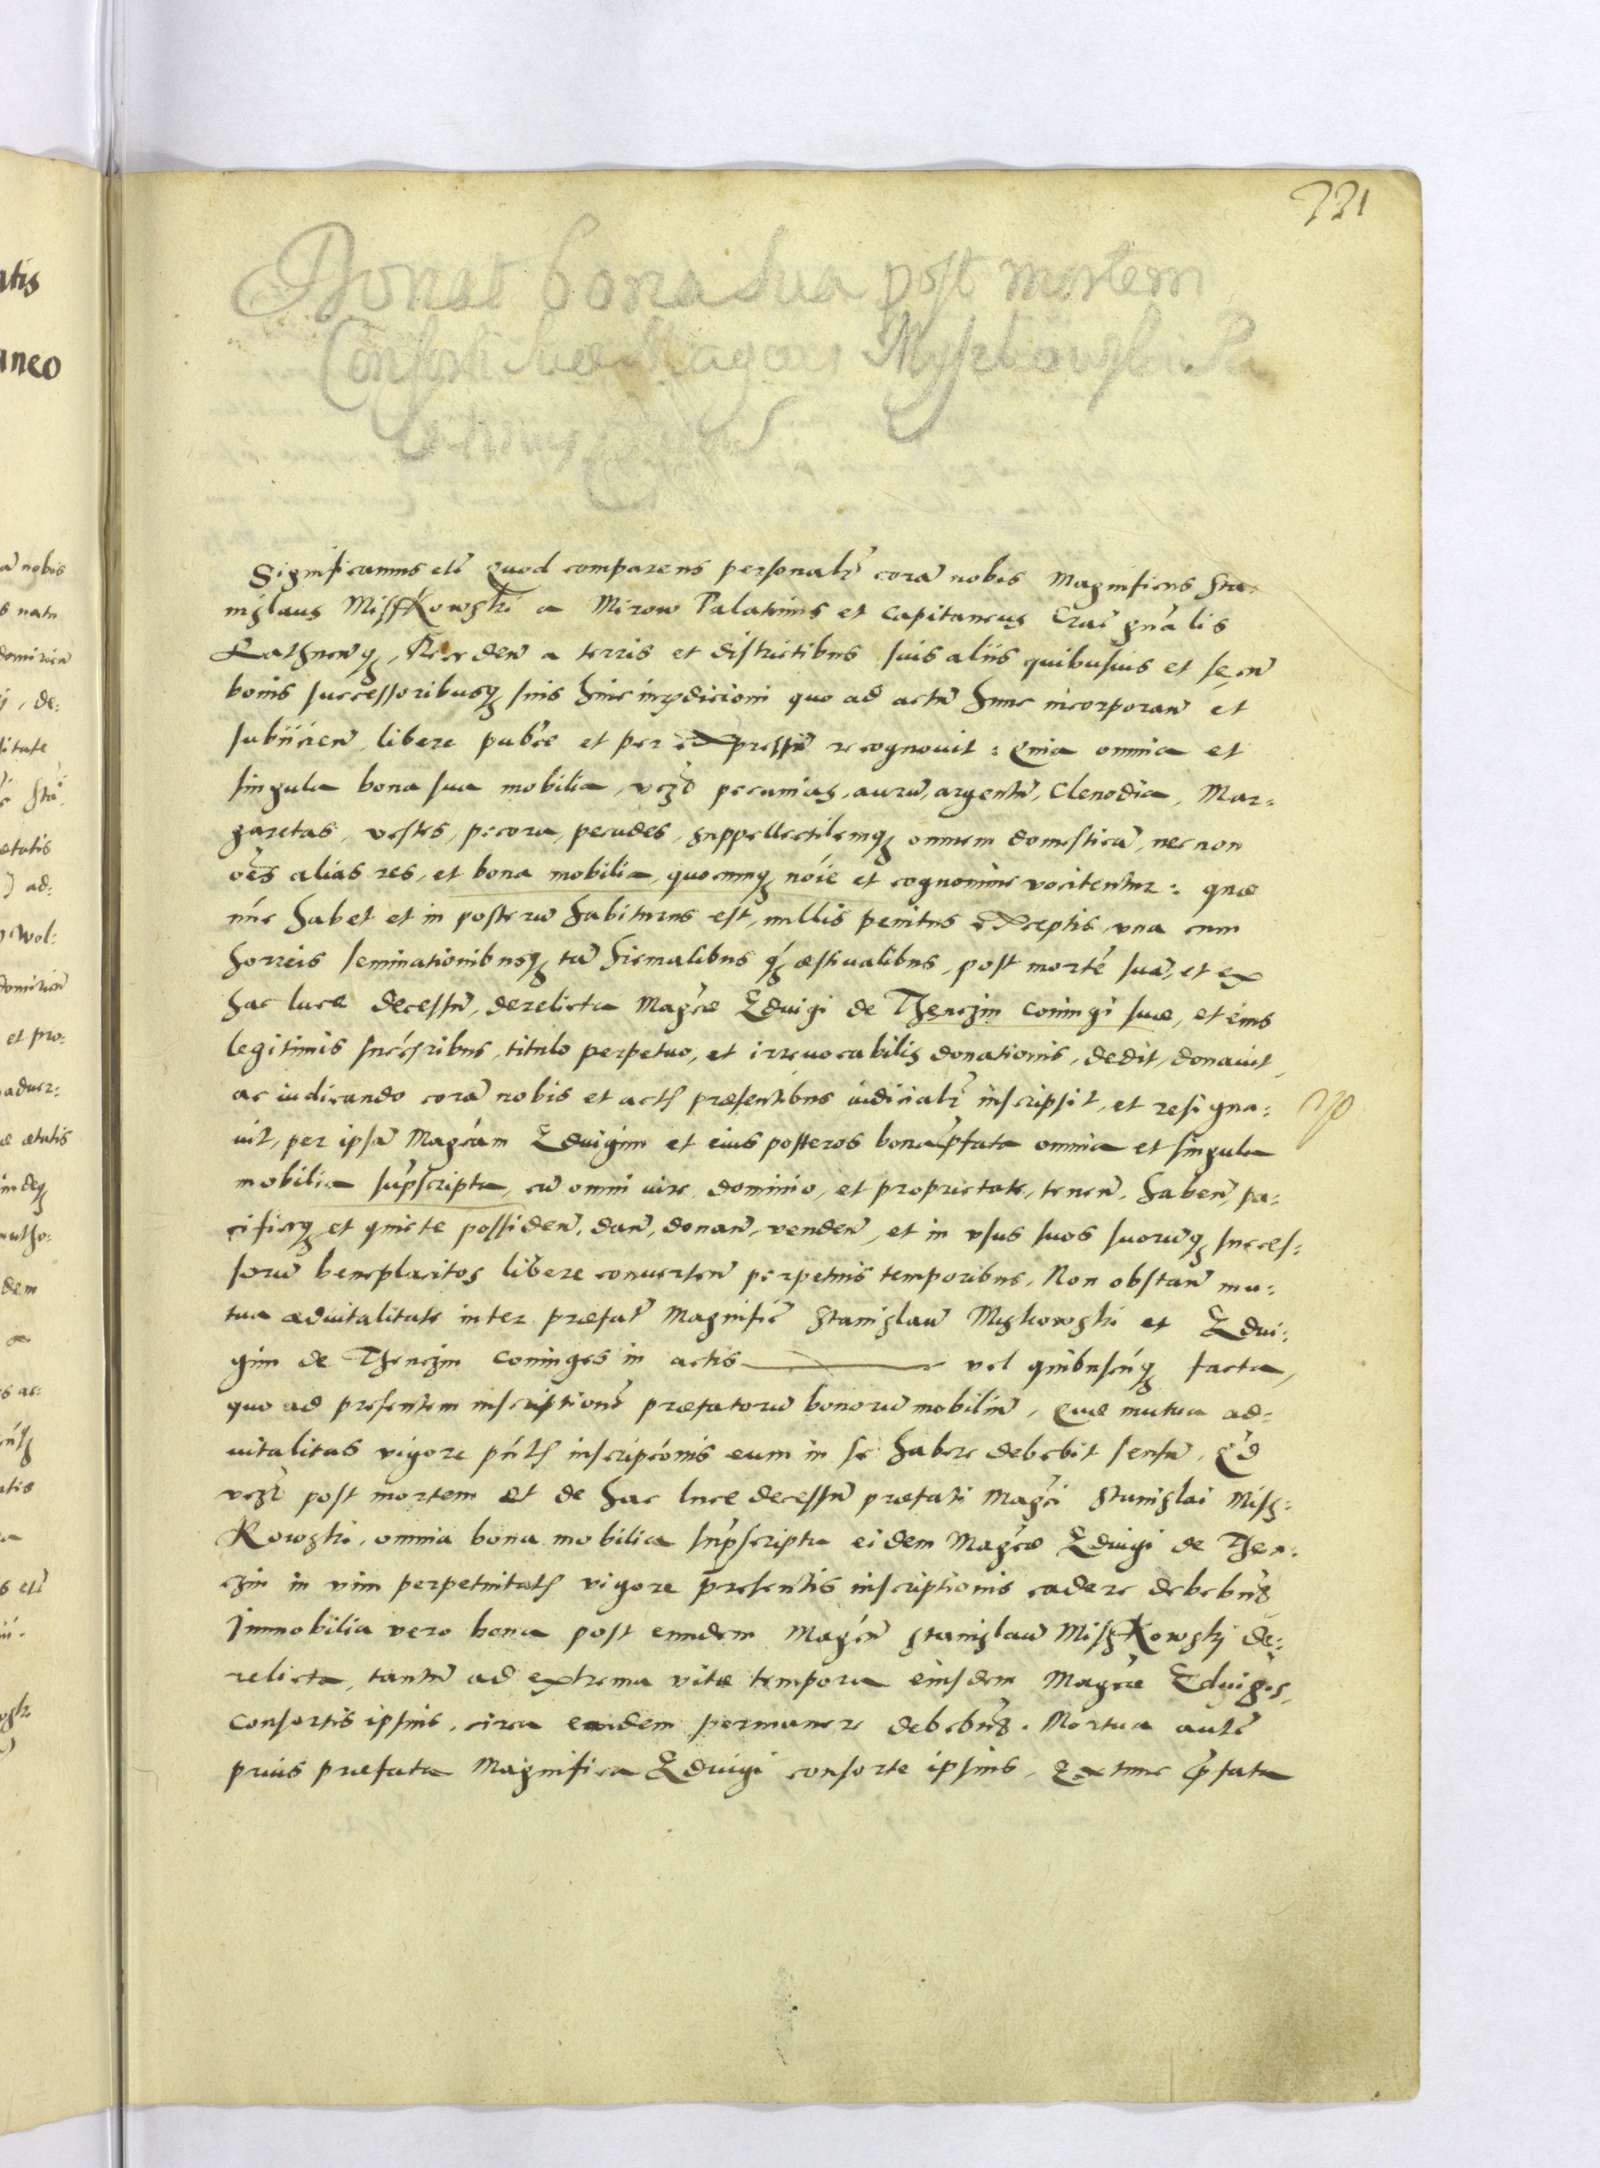 331
Donat bona sua post mortem
Consorti suae Magcus Myszkowski Pa
Significamus etc̃ Quod comparens personalr̃ corã nobis Magnificus Sta:
nislaus Misskowski a Mirow Palatinus et Capitaneus Crac̃ gñalis
Rathneñq̃, Receden̄ a terris et districtibus suis aliis quibusuis et se cũ
bonis successoribusq̃ suis huic iurisdicioni quo ad actũ hunc incorporan̄ et
subiicien̄, libere pub̃ce et per expressũ recognouit: Quia omnia et
singula bona sua mobilia, vcz̃ pecunias, aurũ, argentũ, Clenodia, Mar:
garetas, vestes, pecora, pecudes, suppellectilemq̃ omnem domesticã, nec non
oẽs alias res, et bona mobilia, quocunq̃ nõie et cognomine vocitentur: quae
nũc habet et in posterũ habiturus est, nullis penitus exceptis, vna cum
horreis seminationibusq̃ tã hiemalibus q̃ aestiualibus, post mortẽ suã, et ex
hac luce decessũ, derelicta Magc̃ae Edvigi de Thenczin coniugi suae, et eius
legitimis succ̃ribus, titulo perpetuo, et irreuocabilis donationis, dedit, donauit,
ac iudicando corã nobis et actis praesentibus iudicialr̃ inscripsit, et resigna:
uit, per ipsã Magc̃am Edvigim et eius posteros bona p̃fata omnia et singula
mobilia sup̃scripta, cũ omni iure, dominio, et proprietate, tenen̄, haben̄, pa:
cificeq̃ et quiete possiden̄, dan̄, donan̄, venden̄, et in vsus suos suorũq̃ succes:
sorũ beneplacitos libere conuerten̄ perpetuis temporibus. Non obstan̄ mu:
tua advitalitate inter praefat̃ Magnific̃ Stanislaũ Miskowski et Edvi:
gim de Thenczin coniuges in actis ——— vel quibuscũq̃ facta,
quo ad presentem inscriptionẽ praefatorũ bonorũ mobiliũ, Quae mutua ad:
uitalitas vigore pñtis inscripc̃onis eum in se habere debebit sensũ, Qd̃
vcz̃ post mortem et de hac luce decessũ praefati Magc̃i Stanislai Mis:
kowski, omnia bona mobilia sup̃scripta eidem Magc̃ae Edvigi de Then:
czin in vim perpetuitatis vigore presentis inscriptionis cadere debebũt
Immobilia vero bona post eundem Magc̃ũ Stanislaũ Miskowski de:
relicta, tantũ ad extrema vitae tempora eiusdem Magc̃ae Edvigis,
Consortis ipsius, circa eandem permanere debebũt. Mortua autẽ
prius praefata Magnifica Edvigi consorte ipsius, Ex tunc p̃fata